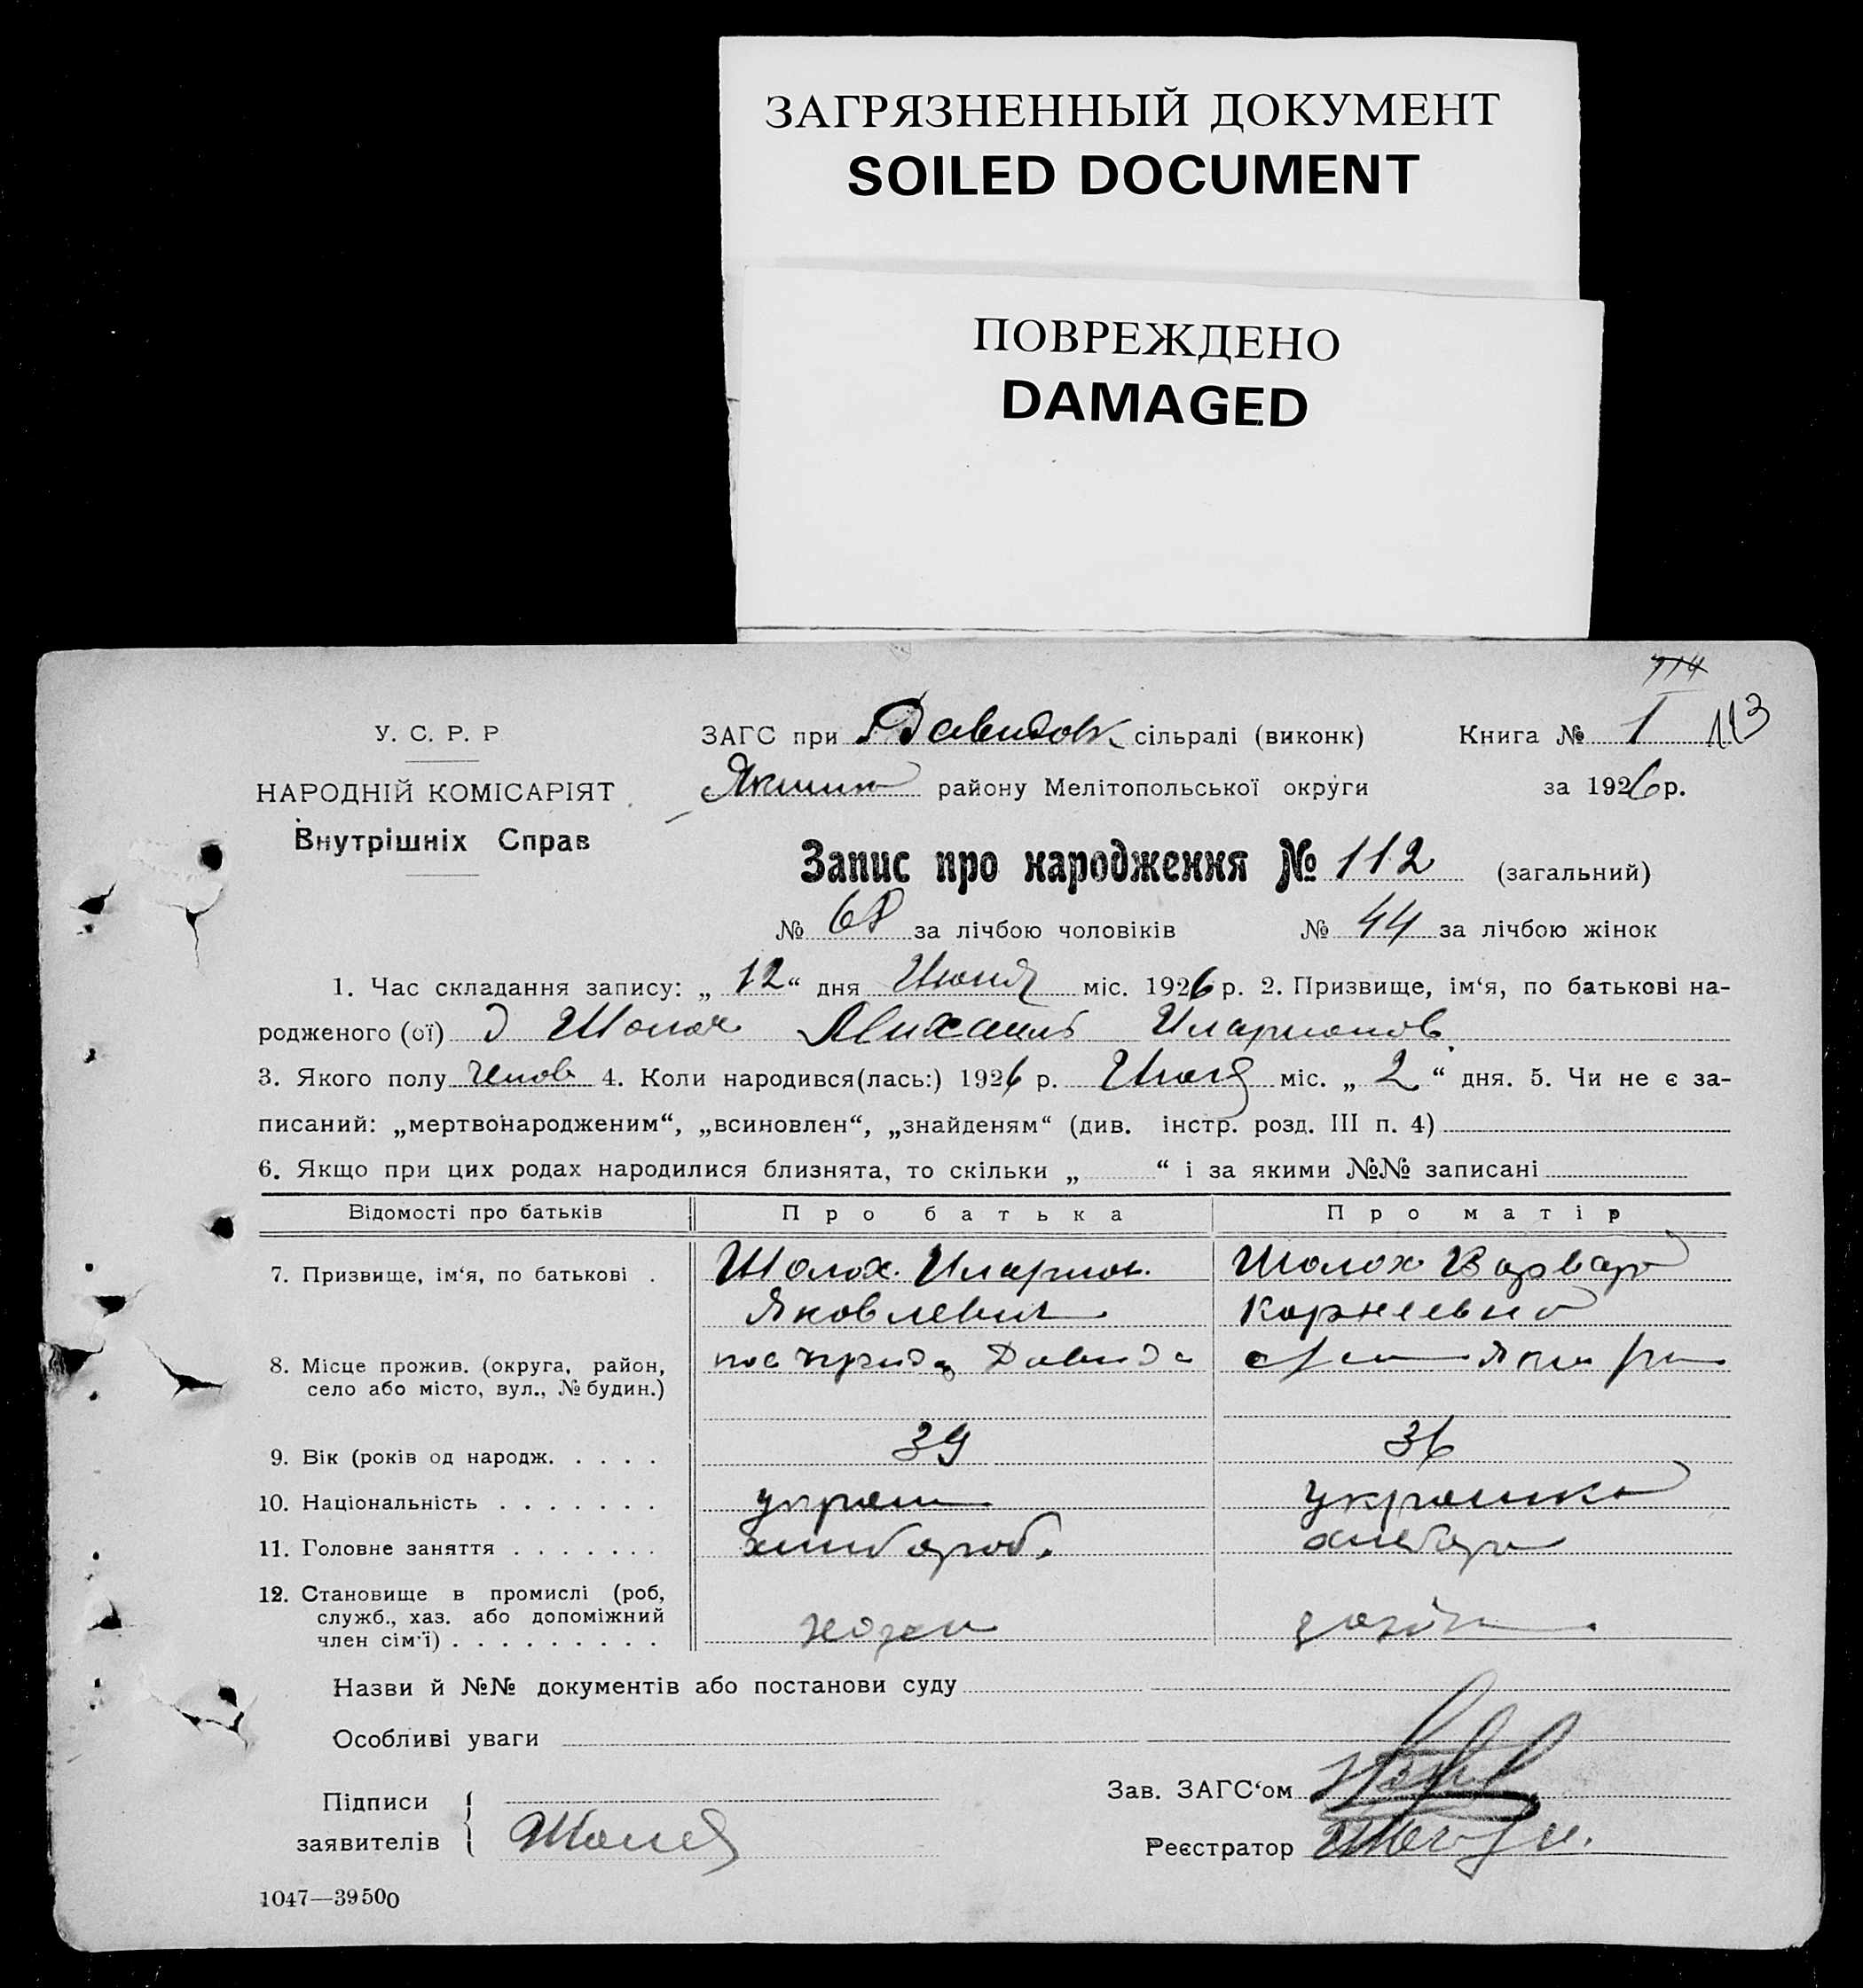 ЗАГРЯЗНЕННЫЙ ДОКУМЕНТ
SOILED DOCUMENT
ПОВРЕЖДЕНО
DAMAGED
114
113
У. С. Р. Р
НАРОДНІЙ КОМІСАРІЯТ
Внутрішніх Справ
ЗАГС при Давидовк. сільраді (виконк) Книга № 1
Якими району Мелітопольської округи за 1926 р.
Запис про народження № 112 (загальний)
№ 68 за лічбою чоловіків № 44 за лічбою жінок
1. Час складання запису: „ 12 “ дня Июня міс. 1926 р. 2. Призвище, ім‘я, по батькові на-
родженого (ої) Шолох Михаиль Иларионов
3. Якого полу 4. Коли народився(лась:) 1926 р. Июня міс. „ 2 “ дня. 5. Чи не є за-
писаний: „мертвонародженим“, „всиновлен“, „знайденям“ (див. інстр. розд. III п. 4)
6. Якщо при цих родах народилися близнята, то скільки „ “ і за якими №№ записані
Відомості про батьків Про батька Про матір
7. Призвище, ім‘я, по батькові . Шолох Иларион. Шолох Варвара
Яковлевич Корнеевна
8. Місце прожив. (округа, район,
село або місто, вул., № будин.)
9. Вік (років од народж. . . . . 39 36
10. Національність . . . . . . . украин украинка
11. Головне заняття . . . . . . . хлибороб.
12. Становище в промислі (роб,
служб., хаз. або допоміжний
член сім‘ї) . . . . . . . . .
Назви й №№ документів або постанови суду
Особливі уваги
Підписи
заявителів
Зав. ЗАГС‘ом
Реєстратор
1047—39500